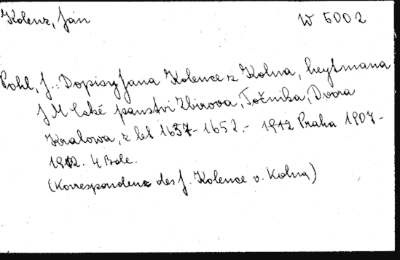 Kolenz, Ján W 5002
Pohl, J.: Dopisy Jana Kolence z Kolna, heytmana
J M Cské panství Zbirova, Točníka, Dvora
Kralowa, z let 1637-1652.- 1912 Praha 1907-
1912. 4 Bde.
(Korrespondenz des J. Kolence v. Kolna)